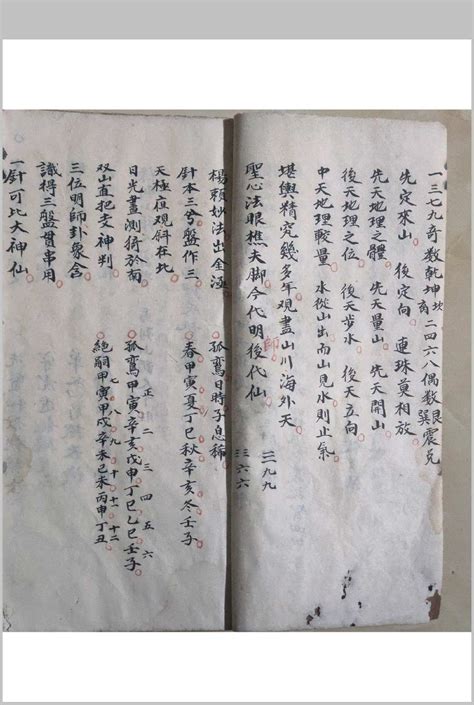 一三七九奇数乾坤坎离 二四六八偶数艮巽震兑
先定來山 後定向 連珠莫相放
先天地理之體 先天量山 先天開山
後天地理之位 後天步水 後天立向
中天地理較量 水從山出而山見水則止氣
堪輿精究幾多年观盡山川海外天
聖心法眼樵夫脚今代明師後代仙
三一九九
三三六六
楊賴妙法出金
針本三兮盤作三
天極庭观斜在北
日光晝測猗於南
双山直把支神判
三位明師卦象含
識得三盤貫串用
一針可比大神仙
孤鸞日時子息稀
春甲寅夏丁巳秋辛亥冬壬子
正 二 三 四 五 六
孤鸞甲寅甲寅辛亥戊申丁巳乙巳壬子
七 八 九 十 十一 十二
絕嗣甲寅甲戌辛未己未丙申丁丑